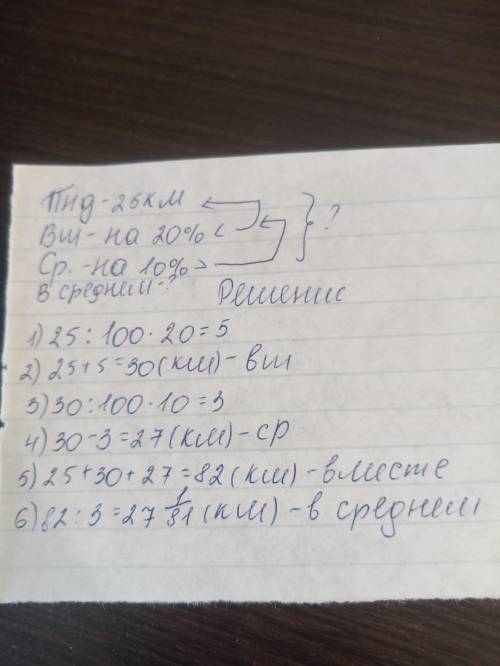 Пнд - 25км
Вт - на 20% <
Ср. - на 10% >
?
в среднем - ?
Решение
1) 25 : 100 · 20 = 5
2) 25 + 5 = 30 (км) - вт
3) 30 : 100 · 10 = 3
4) 30 - 3 = 27 (км) - ср
5) 25 + 30 + 27 = 82 (км) - вместе
6) 82 : 3 = 27 1/81 (км) - в среднем